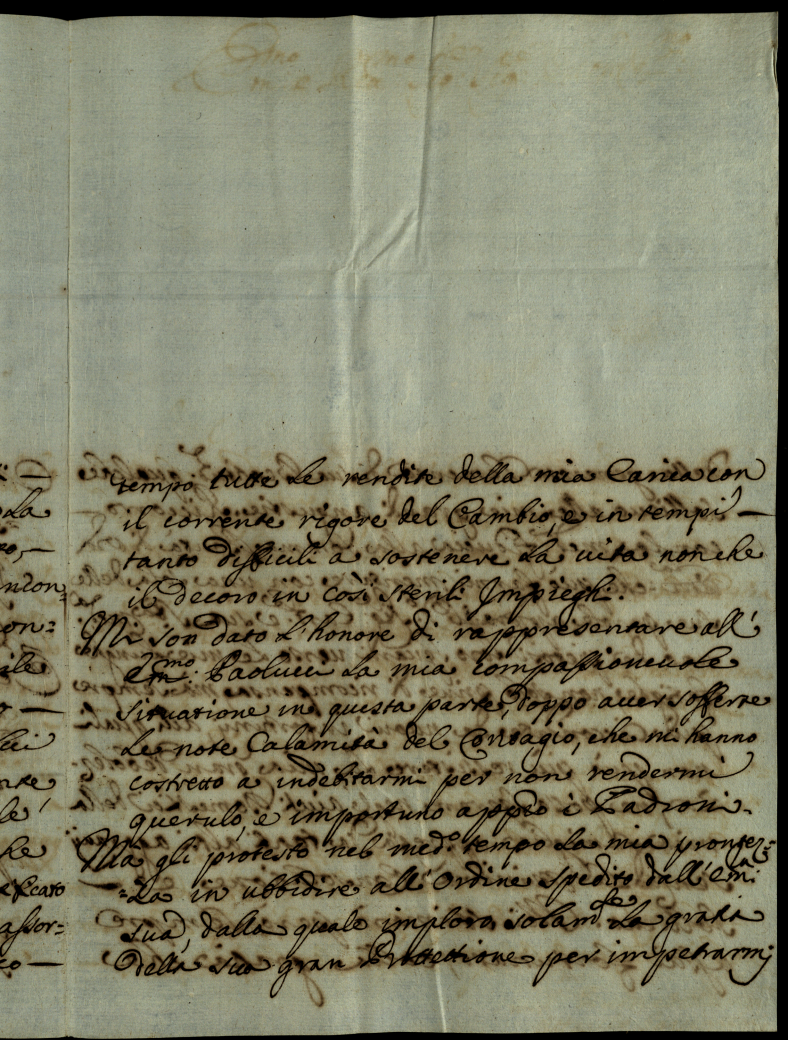 tempo tutte le rendite della mia Carica con
il corrente rigore del Cambio, e in tempi —
tanto difficili a sostenere la vita non che
il decoro in così sterili Impieghi.
Mi son dato l'honore di rappresentare all'
Em.mo Paolucci la mia compassionevole
situatione in questa parte, doppo aver sofferte
le note Calamità del Contagio, che mi hanno
costretto a indebitarmi per non rendermi
querulo, e importuno appẽo i Padroni.
Ma gli protesto nel med.o tempo la mia prontez=
=za in ubbidire all'Ordine spedito dall'Em.a
sua, dalla quale imploro solam.te la gratia
della sua gran Protettione per impetrarmi
la
ncon=
on=
ile
cci
nte
le'
che
eficato
assor=
co —